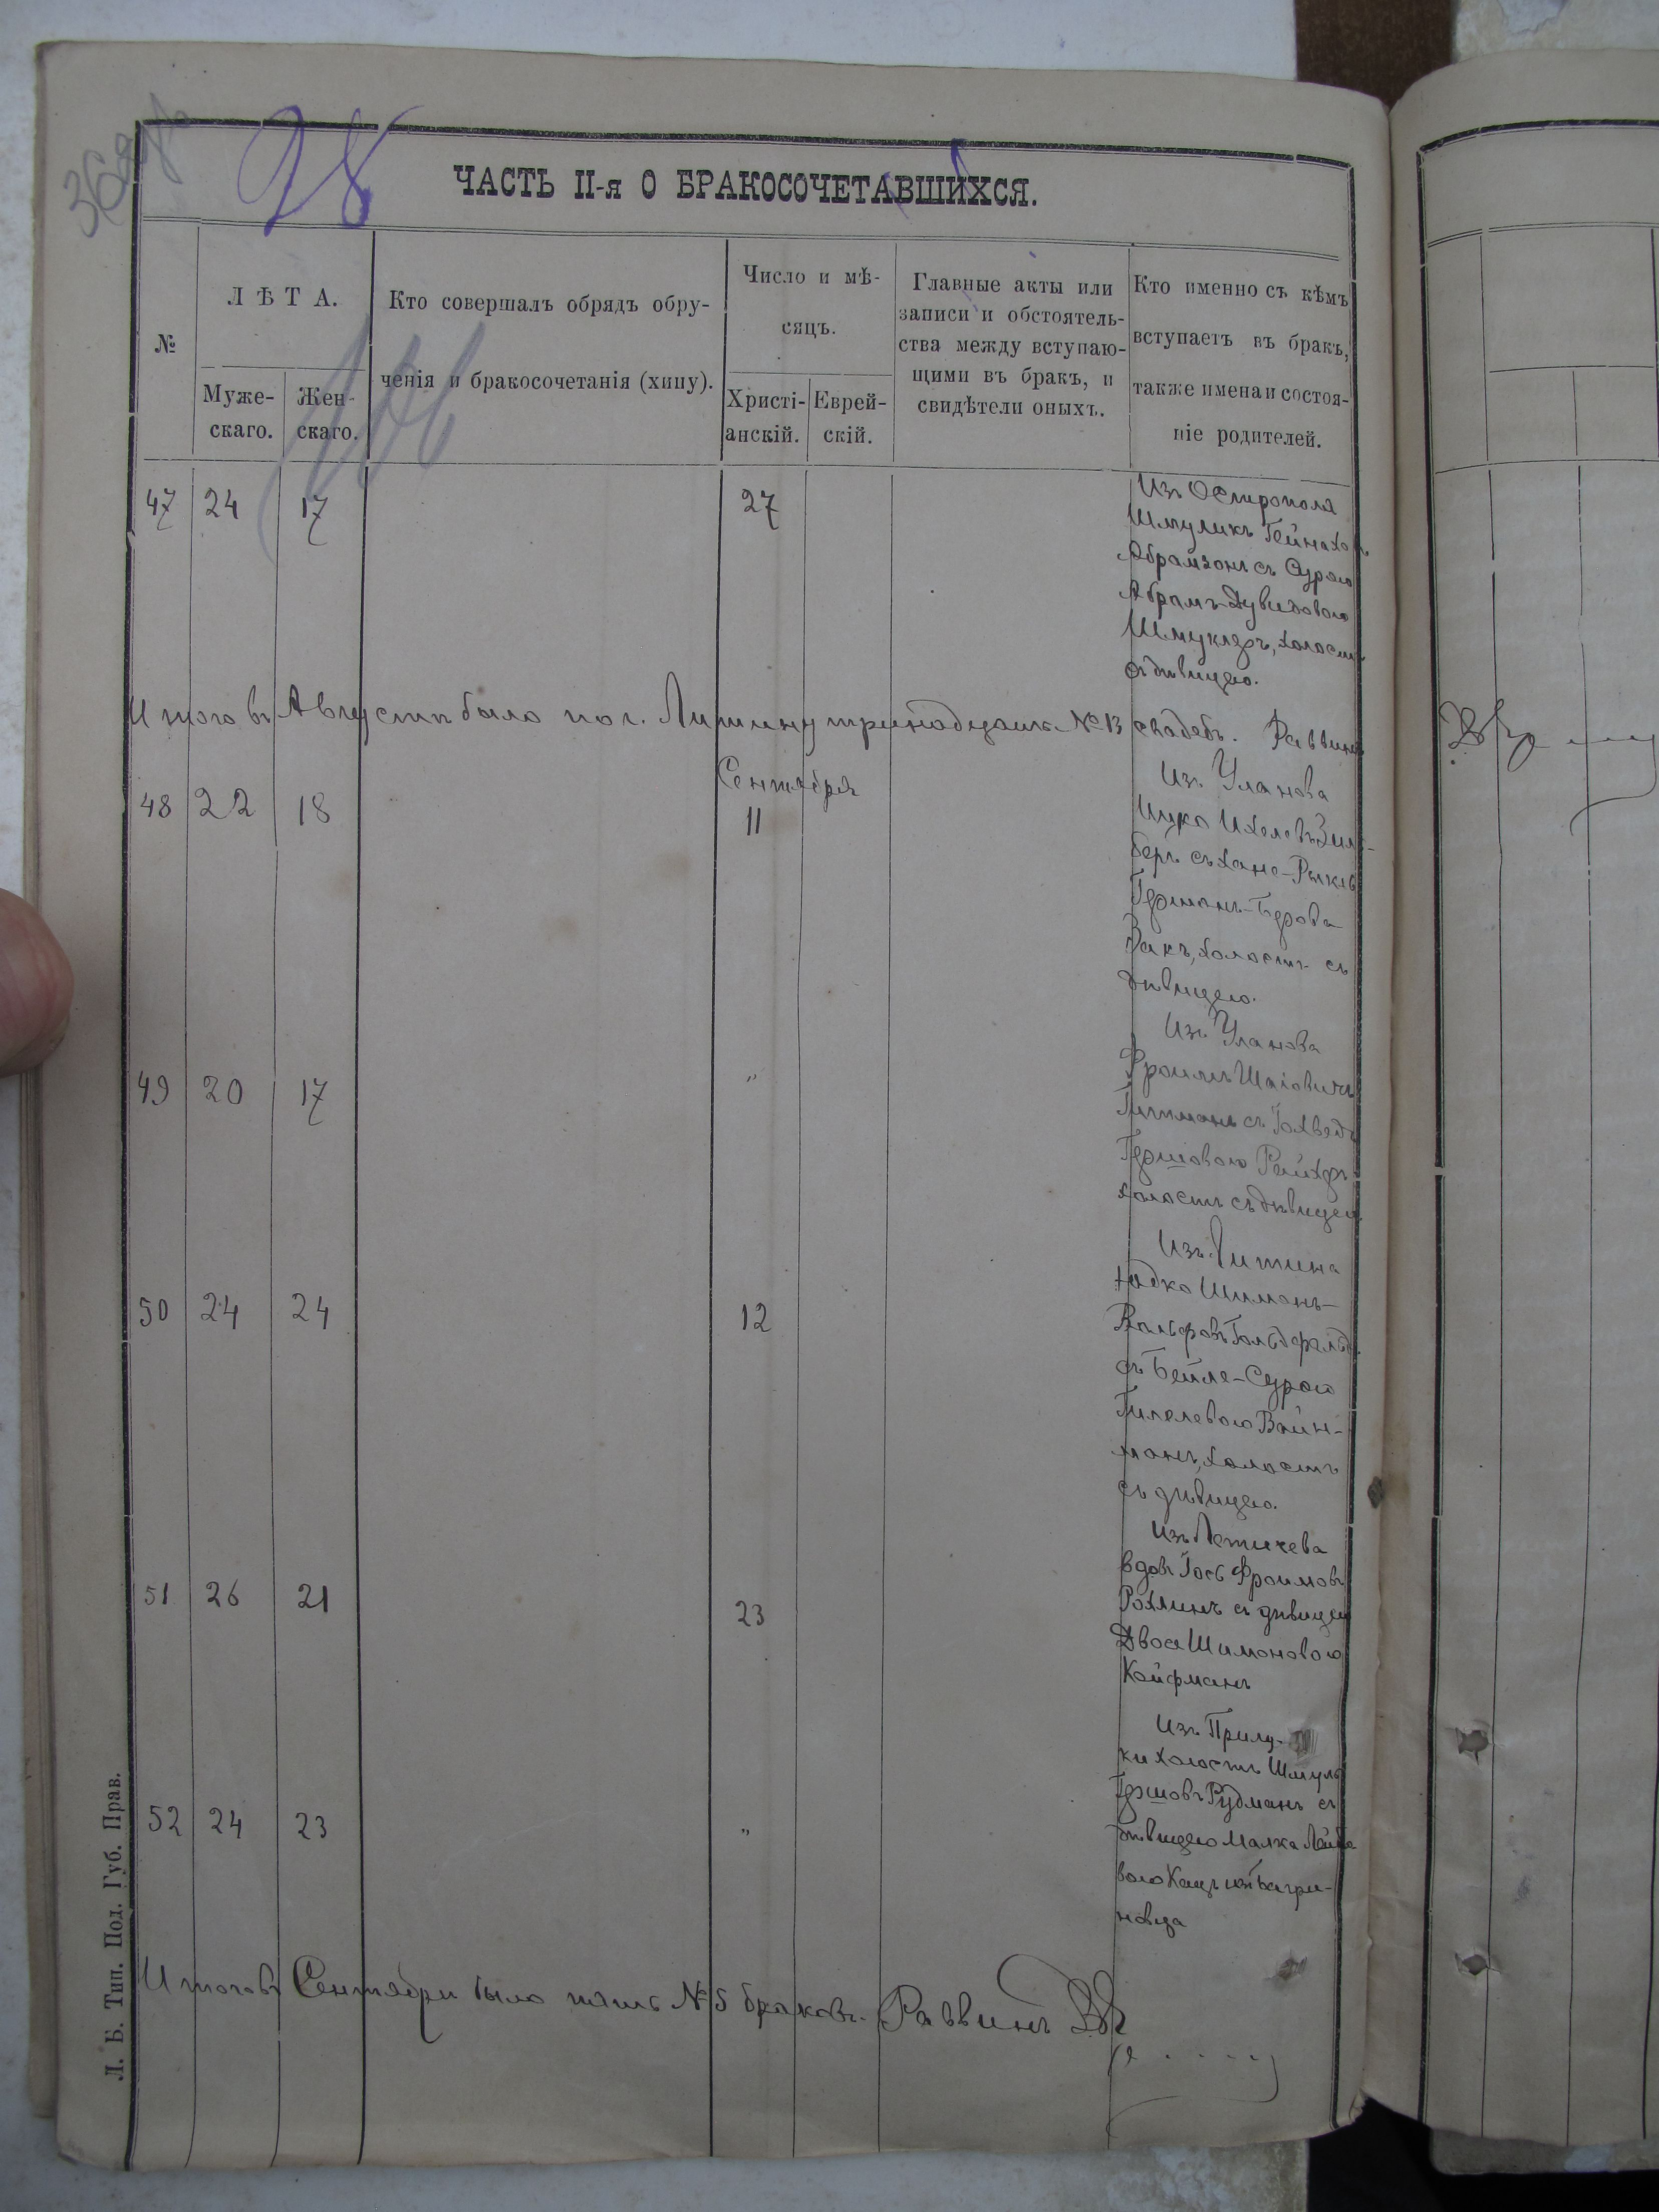 28
ЧАСТЬ II-я О БРАКОСОЧЕТАВШИХСЯ.
№
ЛѢТА.
Муже-
скаго.
Жен-
скаго.
Кто совершалъ обрядъ обру-
ченія и бракосочетанія (хипу).
Число и мѣ-
сяцъ.
Христі-
анскій.
Еврей-
скій.
Главные акты или
записи и обстоятель-
ства между вступаю-
щими въ бракъ, и
свидѣтели оныхъ.
Кто именно съ кѣмъ
вступаетъ въ бракъ,
также имена и состоя-
ніе родителей.
47 24 17 27
Изъ Остирополя
Шмуликъ Гейнахов
Абрамзонъ съ Сурою
Абрамъ-Дувидовою
Шмуклеръ, холостъ
съ дѣвицею.
Итого въ Августѣ было по г. Литину тринадцать № 13 свадебъ. Раввинъ
Сентября
48 22 18 11
Изъ Уланова
Ицко Ихелевъ Зиль-
беръ съ Хане-Рыклѣ
Германъ-Берова
Закъ, холостъ съ
дѣвицею.
49 20 17 "
Изъ Уланова
Фроимъ Шаіовичъ
Гитманъ съ Гохведъ
Гершовою Рейхеръ
холостъ съ дѣвицею
50 24 24 12
Изъ Литина
Юдко Шимонъ-
Вольфовъ Гольдфельдъ
съ Бейле-Сурою
Гилелевою Вайн-
манъ, холостъ
съ дѣвицею.
51 26 21 23
Изъ Летичева
вдовъ Госъ Фроимовъ
Рохлинъ съ дѣвицею
Двося Шимоновою
Койфманъ
52 24 23 "
Изъ Прилу-
ки холостъ Шмуль
Гершовъ Рудманъ съ
дѣвицею Малка Лейбо
вою Кацъ изъ Багри-
новца
Итого въ Сентябрѣ было пять № 5 браковъ. Раввинъ
Л. Б. Тип. Под. Губ. Прав.